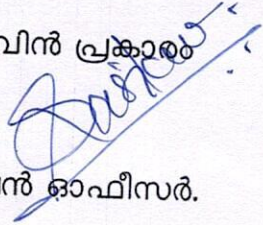 വിൻ പ്രകാരം
ൻ ഓഫീസർ.